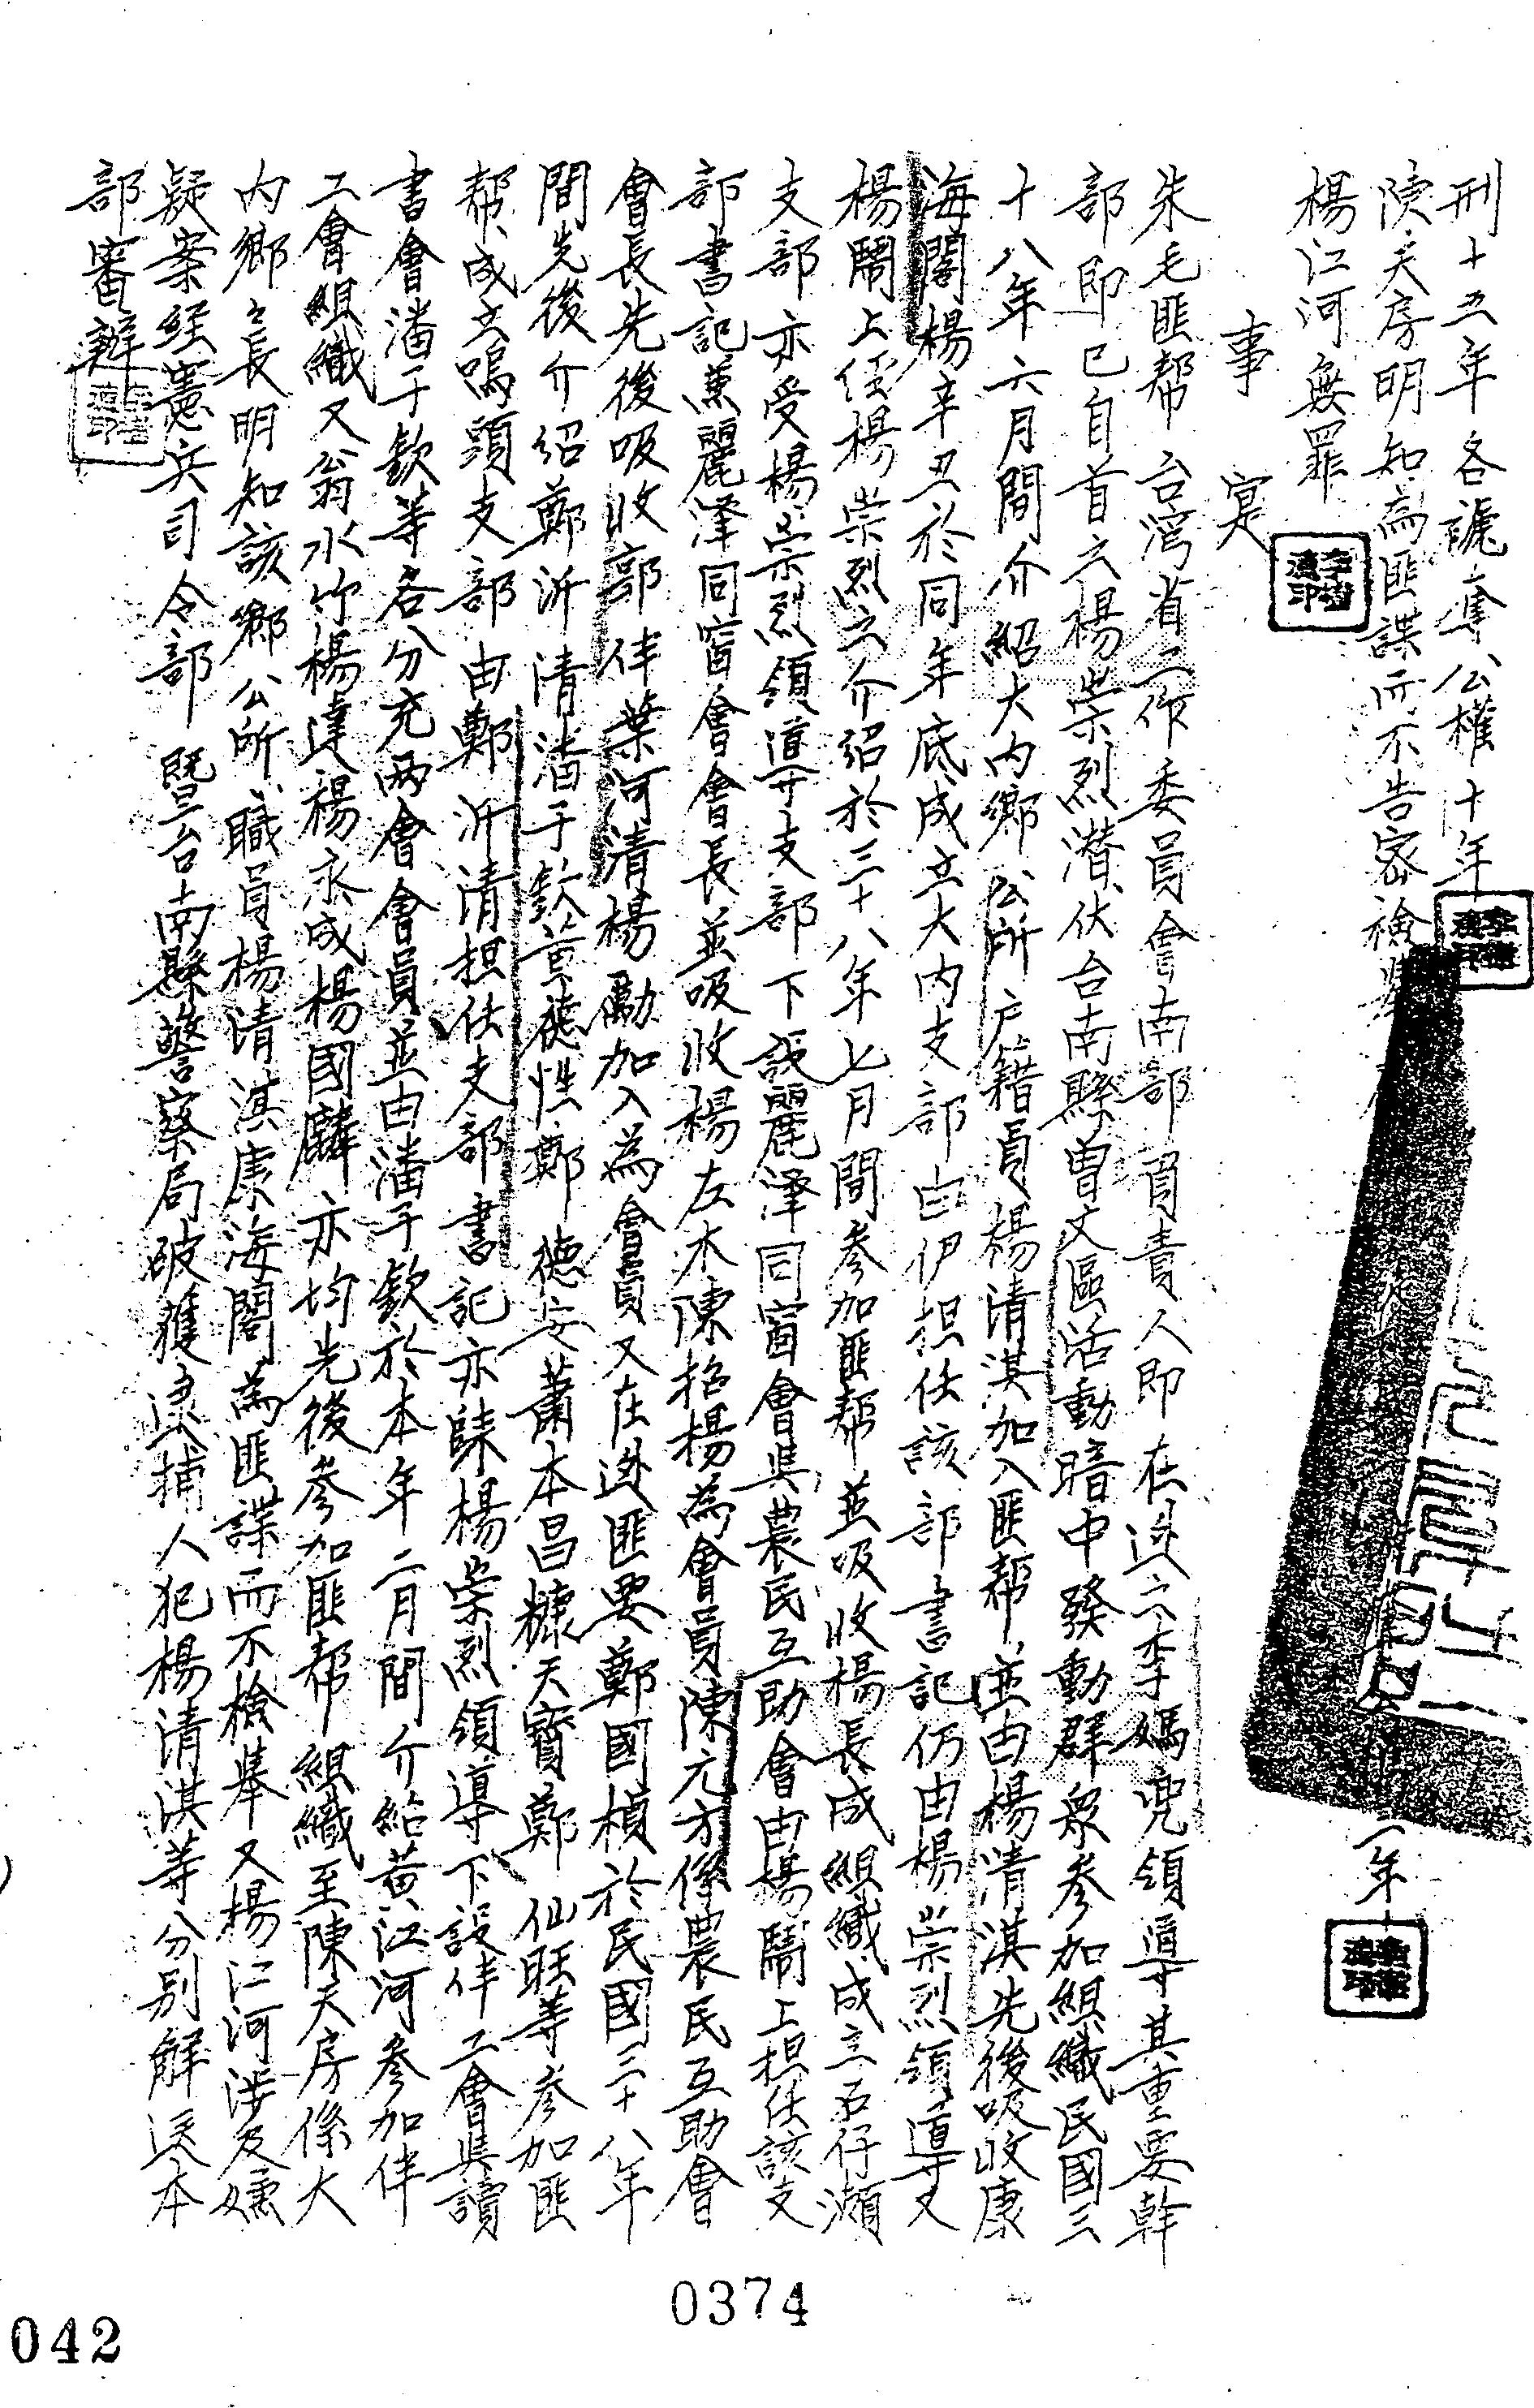 刑十五年各褫奪公權十年
陳天房明知為匪諜而不告密檢舉 二年
楊江河無罪
事實
朱毛匪幫台灣省工作委員會南部負責人即在逃之李媽兜領導其重要幹
部即已自首之楊崇烈潛伏台南縣曾文區活動暗中發動群眾參加組織民國三
十八年六月間介紹大內鄉公所戶籍員楊清淇加入匪幫並由楊清淇先後吸收康
海閣楊辛丑於同年底成立大內支部由伊担任該部書記仍由楊崇烈領導又
楊鬧上經楊崇烈之介紹於三十八年七月間參加匪幫並吸收楊長成組織成立石仔瀨
支部亦受楊崇烈領導支部下設麗澤同窗會與農民互助會由楊鬧上担任該支
部書記兼麗澤同窗會會長並吸收楊左木陳招楊為會員陳元方係農民互助會
會長先後吸收郭伴葉河清楊勵加入為會員又在逃匪要鄭國楨於民國三十八年
間先後介紹鄭沂清潘于欽董德性鄭德安蕭本昌糠天寶鄭仙旺等參加匪
幫成立嗚頭支部由鄭沂清担任支部書記亦隸楊崇烈領導下設伴工會與讀
書會潘于欽等各分充兩會會員並由潘于欽於本年二月間介紹黃江河參加伴
工會組織又翁水竹楊達楊永成楊國麟亦均先後參加匪幫組織至陳天房係大
內鄉々長明知該鄉公所職員楊清淇康海閣為匪諜而不檢舉又楊江河涉及嫌
疑案經憲兵司令部暨台南縣警察局破獲逮捕人犯楊清淇等分別解送本
部審辦
0374
042